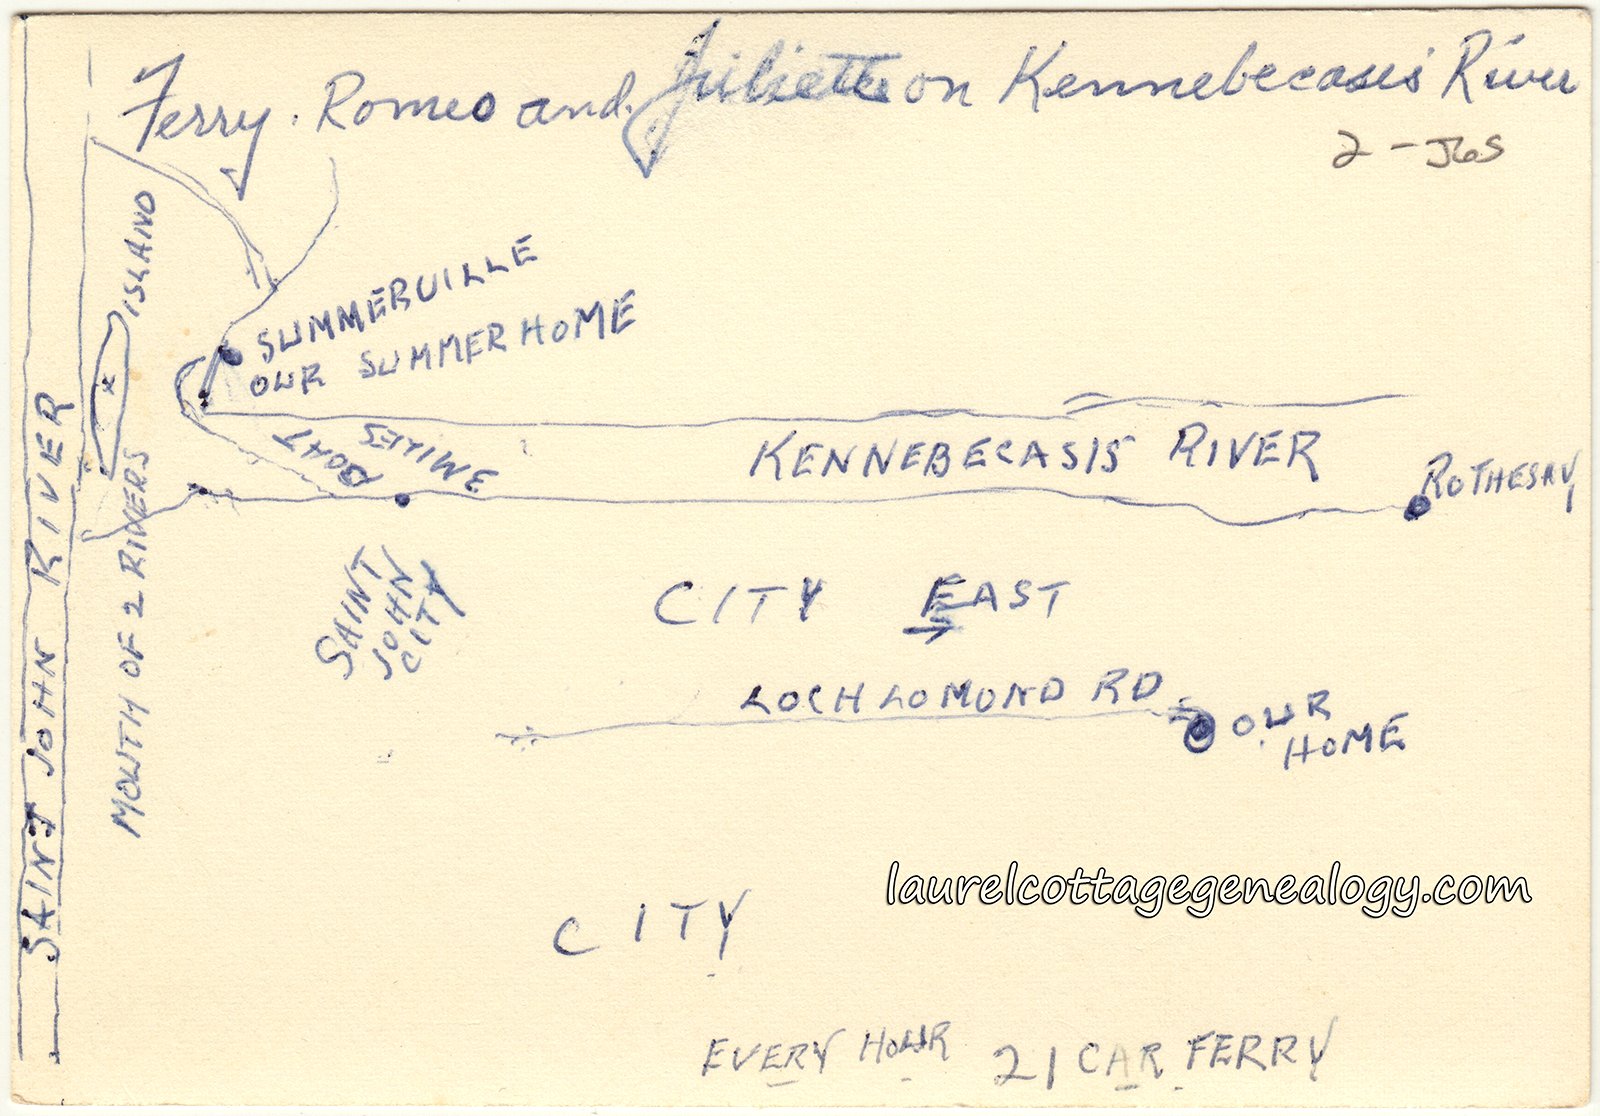 Ferry. Romeo and Juliette on Kennebecasis River
2 - J6S
ISLAND
SUMMERVILLE
OUR SUMMER HOME
BOAT
3 MILES
KENNEBECASIS RIVER
ROTHESAY
SAINT JOHN RIVER
MOUTH OF 2 RIVERS
SAINT
JOHN
CITY
CITY EAST
LOCH LOMOND RD
OUR
HOME
laurelcottagegenealogy.com
CITY
EVERY HOUR 21 CAR FERRY